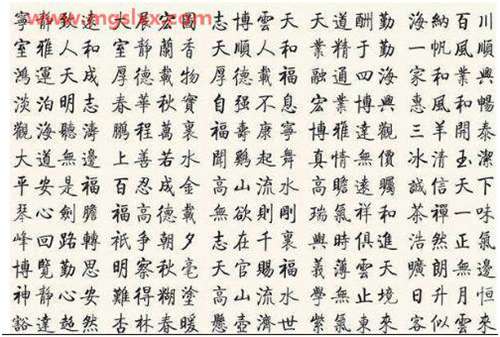 www.mgslxx.com
寧靜致遠 大展宏圖 志博雲天 天道酬勤 海納百川
室雅人和 室靜蘭香 天順人和 業精于勤 一帆風順
鴻運天成 厚德載物 厚德載福 融通四海 家和業興
淡泊明志 春華秋實 自强不息 宏業博興 惠風和暢
觀海聽濤 鵬程萬裏 福壽康寧 博雅達觀 三羊開泰
大道無邊 上善若水 聞鷄起舞 真情無價 冰清玉潔
平安是福 百忍成金 高山流水 高瞻遠矚 誠信天下
琴心劍膽 福高德載 無欲則剛 瑞氣祥和 茶禪一味
峰回路轉 祇爭朝夕 志在千裏 與時俱進 浩然正氣
博覽勤思 明察秋毫 天官賜福 義薄雲天 曠朗無邊
神靜心安 難得糊塗 高山流水 學無止境 日升月恒
豁達超然 杏林春暖 懸壺濟世 紫氣東來 客似雲來